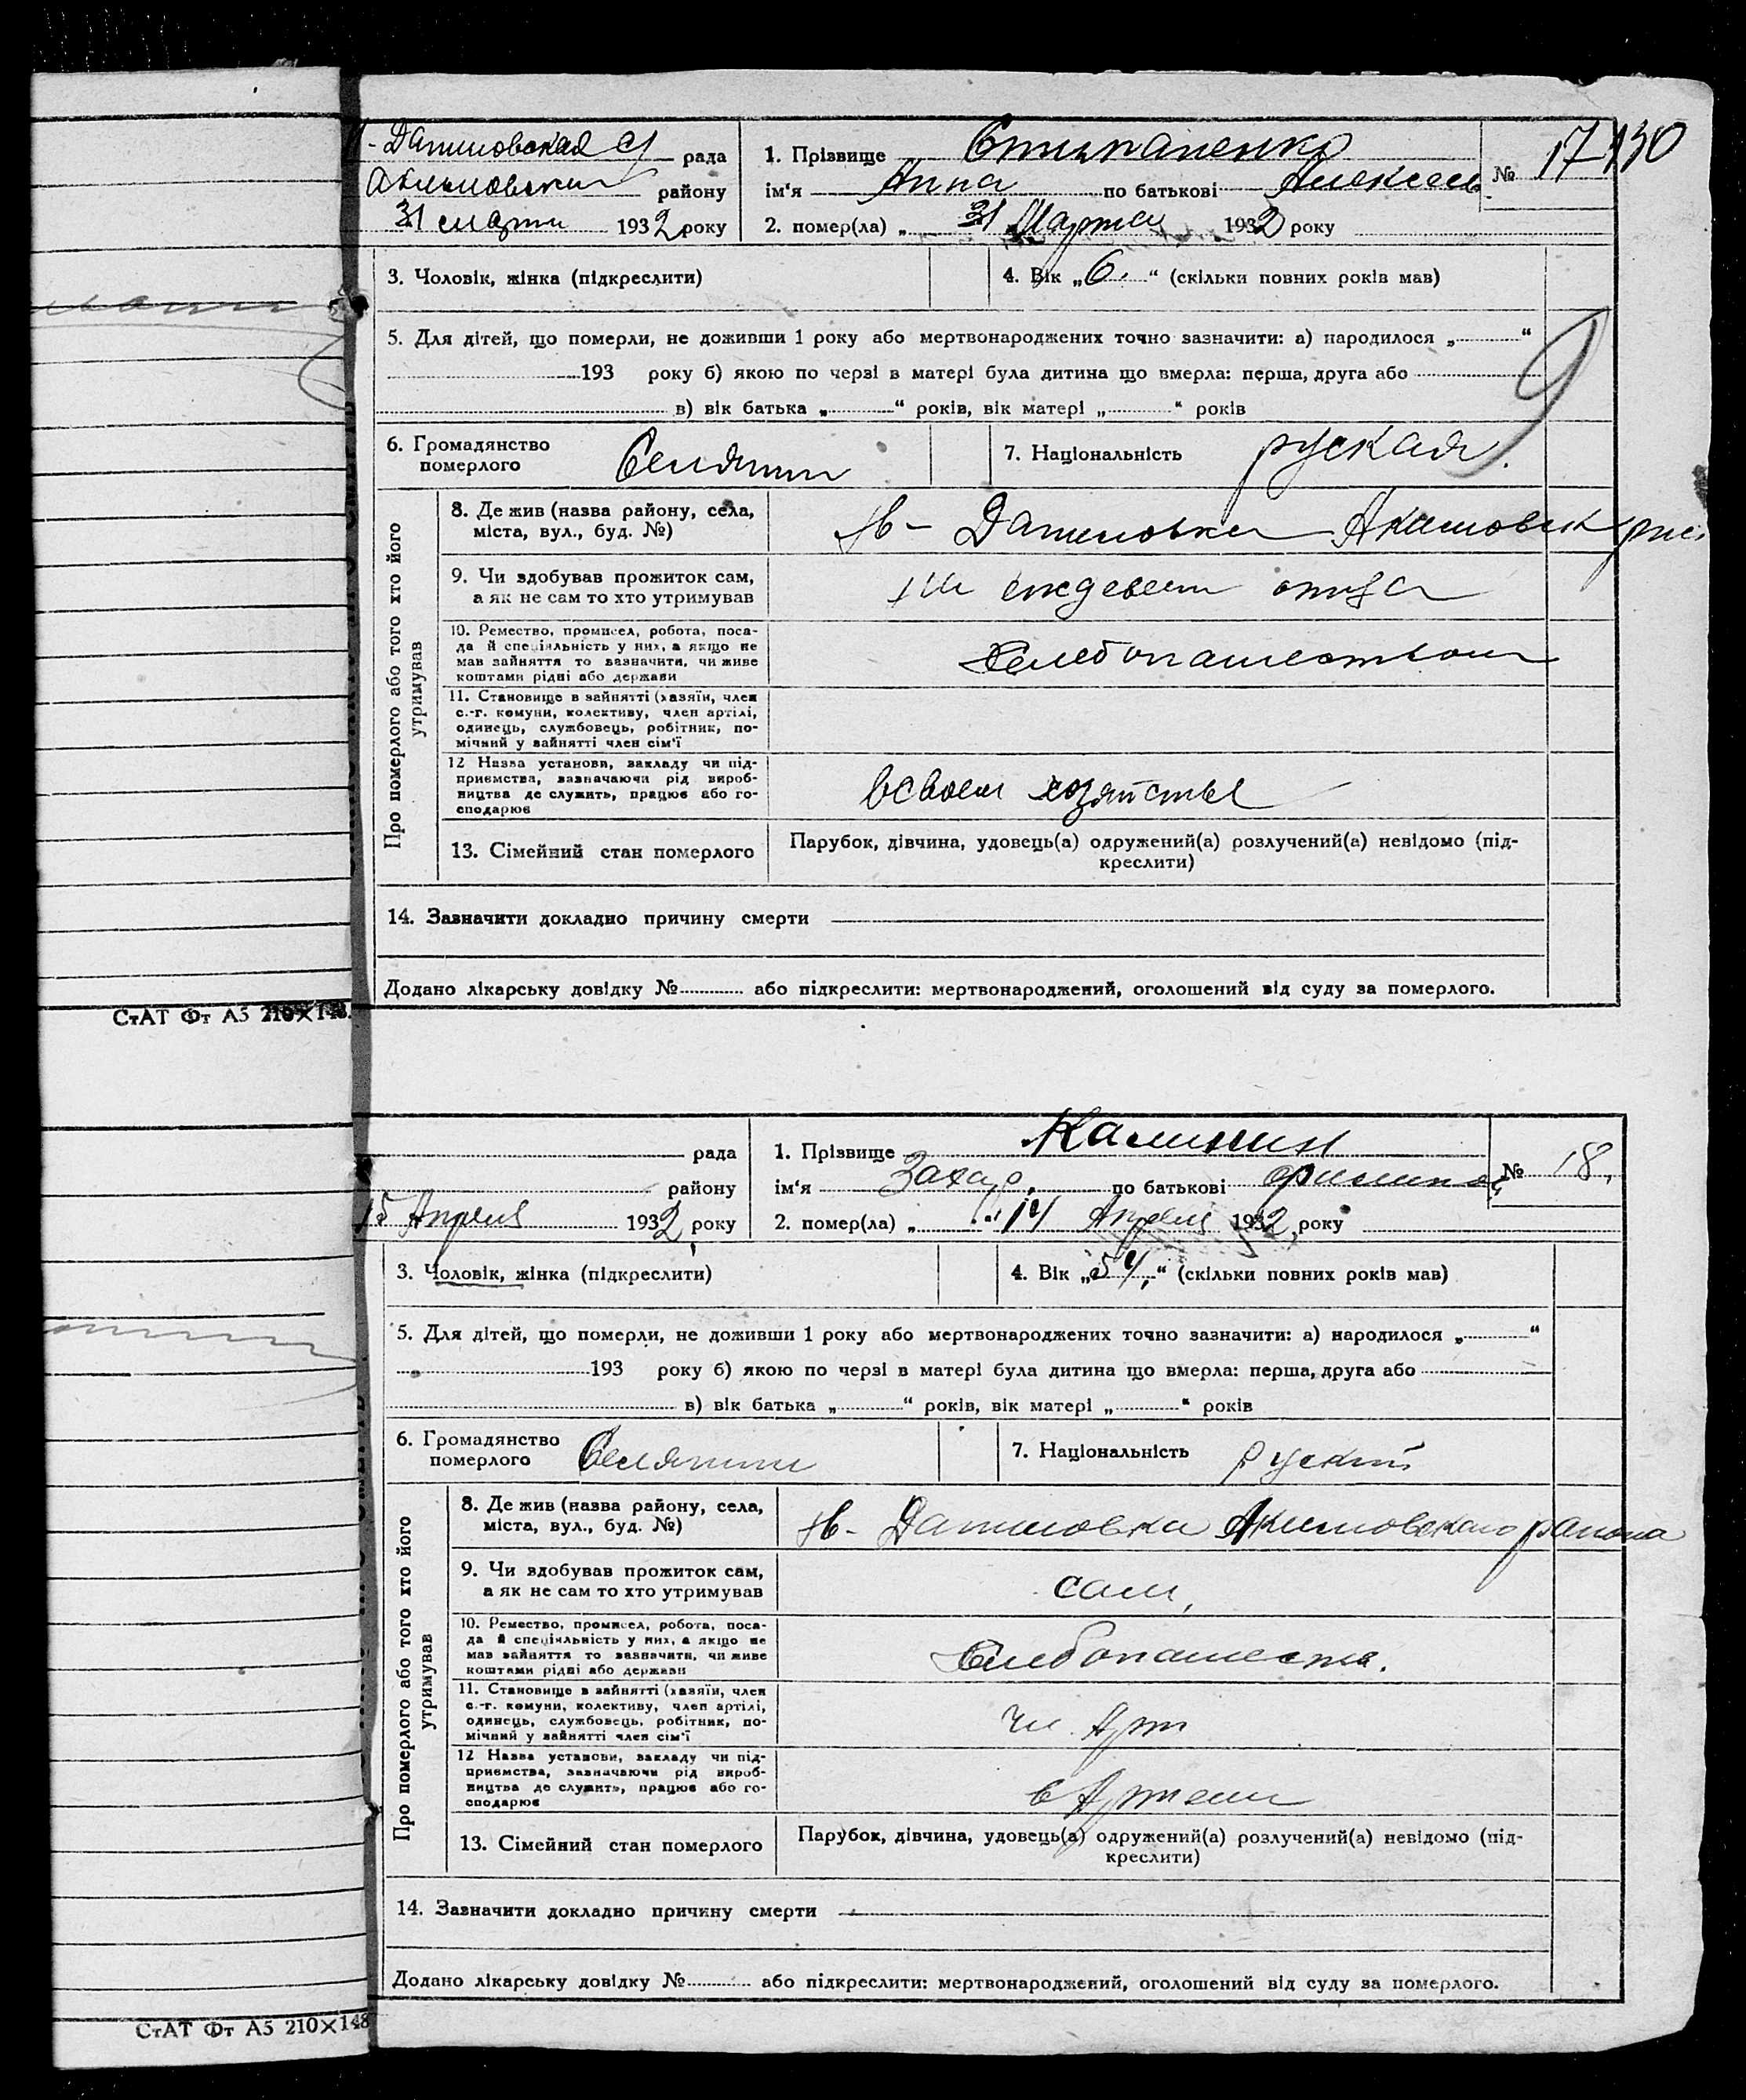 Н-Даниловская с/ рада
Акимовский району
31 марта 1932 року
1. Прізвище Стипаненко
ім'я Анна по батькові Алексеев
№ 17 130
2. помер(ла) „ 31 Марта 1932 року
3. Чоловік, жінка (підкреслити)
4. Вік „6.“ (скільки повних років мав)
5. Для дітей, що померли, не доживши 1 року або мертвонароджених точно зазначити: а) народилося „ “
193 року б) якою по черзі в матері була дитина що вмерла: перша, друга або
в) вік батька „ “ років, вік матері „ “ років
6. Громадянство
померлого
Селянин
7. Національність руская.
Про померлого або того хто його
утримував
8. Де жив (назва району, села,
міста, вул., буд. №)
Н- Даниловка Акимовск
9. Чи здобував прожиток сам,
а як не сам то хто утримував
иждевен отца
10. Ремество, промисел, робота, поса-
да й спеціяльність у них, а якщо не
мав зайняття то зазначити, чи живе
коштами рідні або держави
Хлебопашеством
11. Становище в зайнятті (хазяїн, член
с.-г. комуни, колективу, член артілі,
одинець, службовець, робітник, по-
мічний у зайнятті член сім'ї
12 Назва установи, закладу чи під-
приємства, зазначаючи рід вироб-
ництва де служить, працює або го-
сподарює
всвоем хозяйстве
13. Сімейний стан померлого
Парубок, дівчина, удовець(а) одружений(а) розлучений(а) невідомо (під-
креслити)
14. Зазначити докладно причину смерти
Додано лікарську довідку № або підкреслити: мертвонароджений, оголошений від суду за померлого.
СтАТ Фт А5 210×148.
рада
району
15 Апреля 1932 року
1. Прізвище Калинин
ім'я Захар. по батькові Филипов.
№ 18.
2. помер(ла) „ 14 Апреля 1932 року
3. Чоловік, жінка (підкреслити)
4. Вік „54.“ (скільки повних років мав)
5. Для дітей, що померли, не доживши 1 року або мертвонароджених точно зазначити: а) народилося „ “
193 року б) якою по черзі в матері була дитина що вмерла: перша, друга або
в) вік батька „ “ років, вік матері „ “ років
6. Громадянство
померлого
Селянин
7. Національність руский
Про померлого або того хто його
утримував
8. Де жив (назва району, села,
міста, вул., буд. №)
Н- Даниловка Акимовского района
9. Чи здобував прожиток сам,
а як не сам то хто утримував
сам,
10. Ремество, промисел, робота, поса-
да й спеціяльність у них, а якщо не
мав зайняття то зазначити, чи живе
коштами рідні або держави
Хлебопашеств.
11. Становище в зайнятті (хазяїн, член
с.-г. комуни, колективу, член артілі,
одинець, службовець, робітник, по-
мічний у зайнятті член сім'ї
чл. Арт
12 Назва установи, закладу чи під-
приємства, зазначаючи рід вироб-
ництва де служить, працює або го-
сподарює
в Артели
13. Сімейний стан померлого
Парубок, дівчина, удовець(а) одружений(а) розлучений(а) невідомо (під-
креслити)
14. Зазначити докладно причину смерти
Додано лікарську довідку № або підкреслити: мертвонароджений, оголошений від суду за померлого.
СтАТ Фт А5 210×148